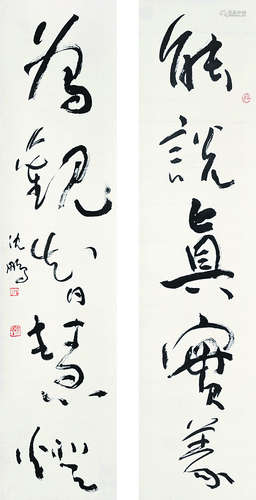 能說眞實義
為觀智慧燈
沈鵬